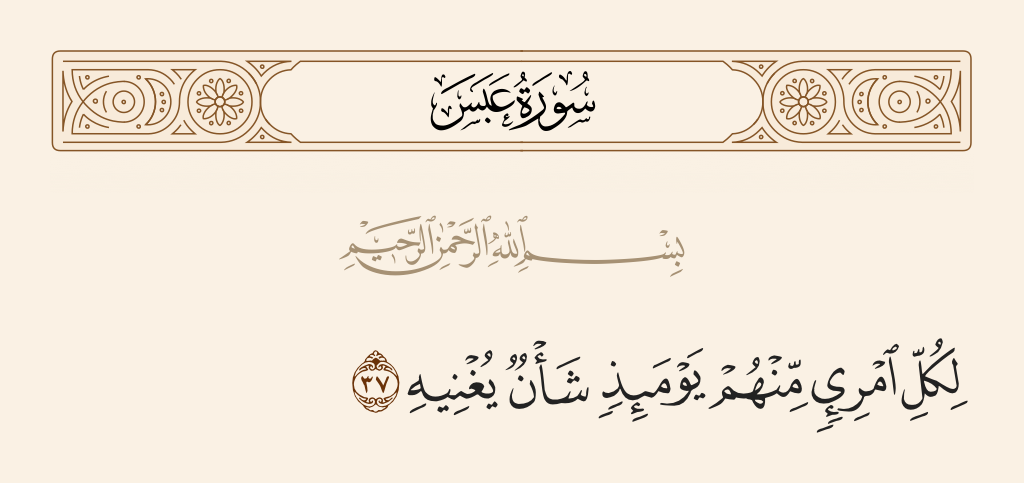 سُورَةُ عَبَسَ
بِسْمِ ٱللَّهِ ٱلرَّحْمَٰنِ ٱلرَّحِيمِ
لِكُلِّ ٱمْرِئٍ مِّنْهُمْ يَوْمَئِذٍ شَأْنٌ يُغْنِيهِ ٣٧